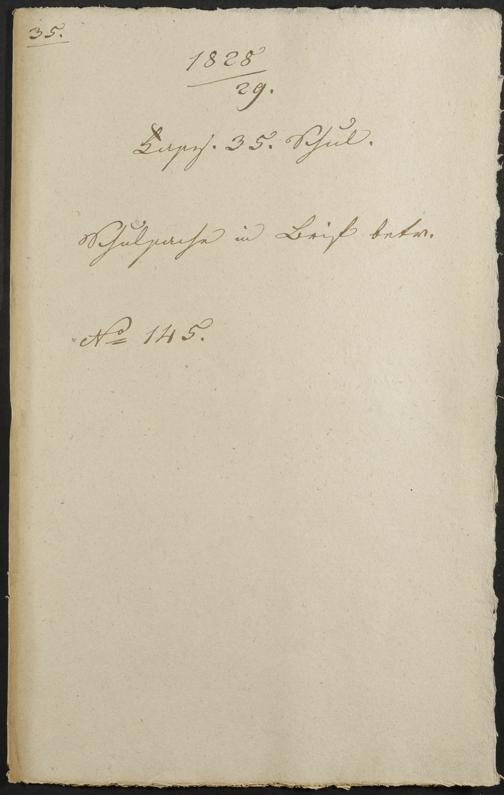 35.
1828
29.
Caps. 35. Schul.
Schulsache in Breisf betr.
No 145.